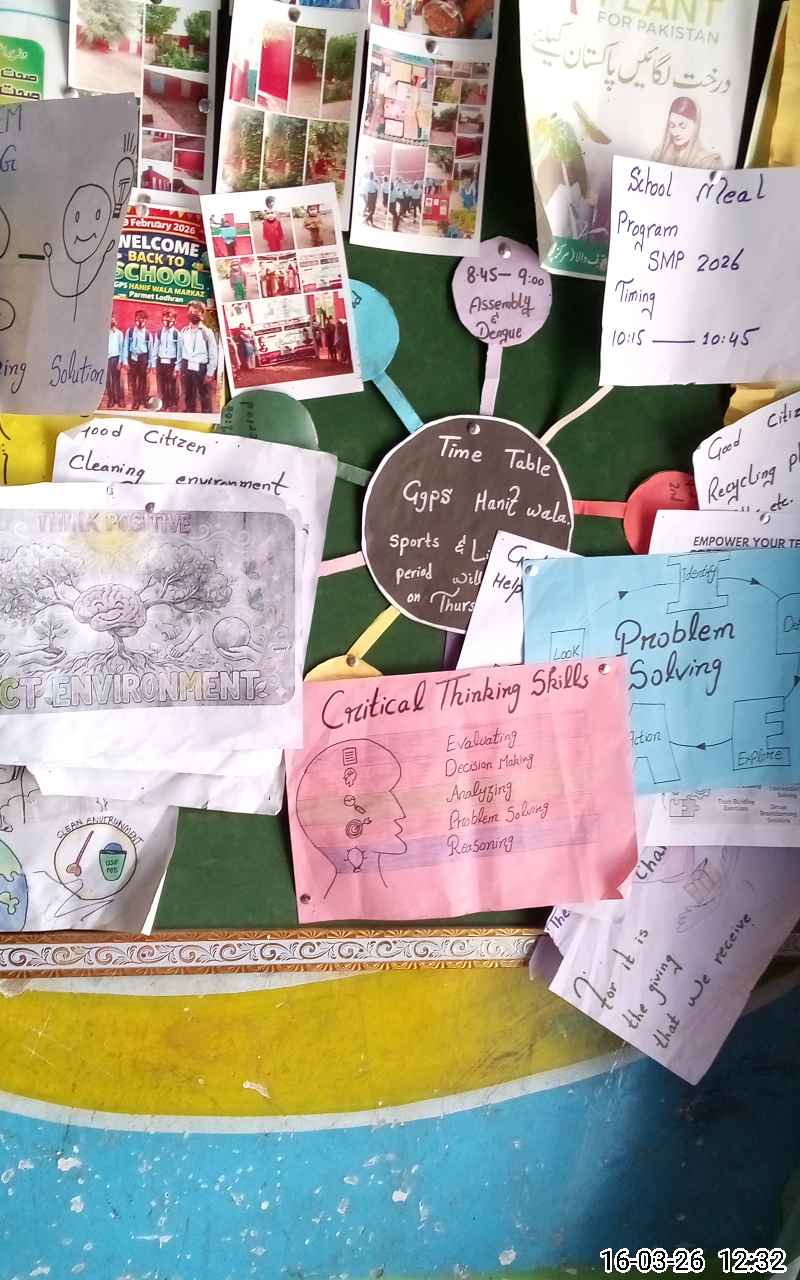 PLANT
FOR PAKISTAN
درخت لگائیں پاکستان کیلئے
School Meal
Program
SMP 2026
Timing
10:15 — 10:45
February 2026
WELCOME
BACK TO
SCHOOL
GPS HANIF WALA MARKAZ
Parmet Lodhran
Solution
8:45 — 9:00
Assembly
&
Dengue
Time Table
Ggps Hanif wala.
Sports & Li
period will
on Thurs
2nd
Good Citizen
Cleaning environment
THINK POSITIVE
CT ENVIRONMENT
CLEAN ENVIRONMENT
USE
ME
Good Citiz
Recycling pl
etc.
EMPOWER YOUR TE
Help
Identify
LOOK
Problem
Solving
Action
Explore
Critical Thinking Skills
Evaluating
Decision Making
Analyzing
Problem Solving
Reasoning
Team Building
Exercises
Group
Brainstorming
Sessions
The
for it is
the giving
that we receive
16-03-26 12:32